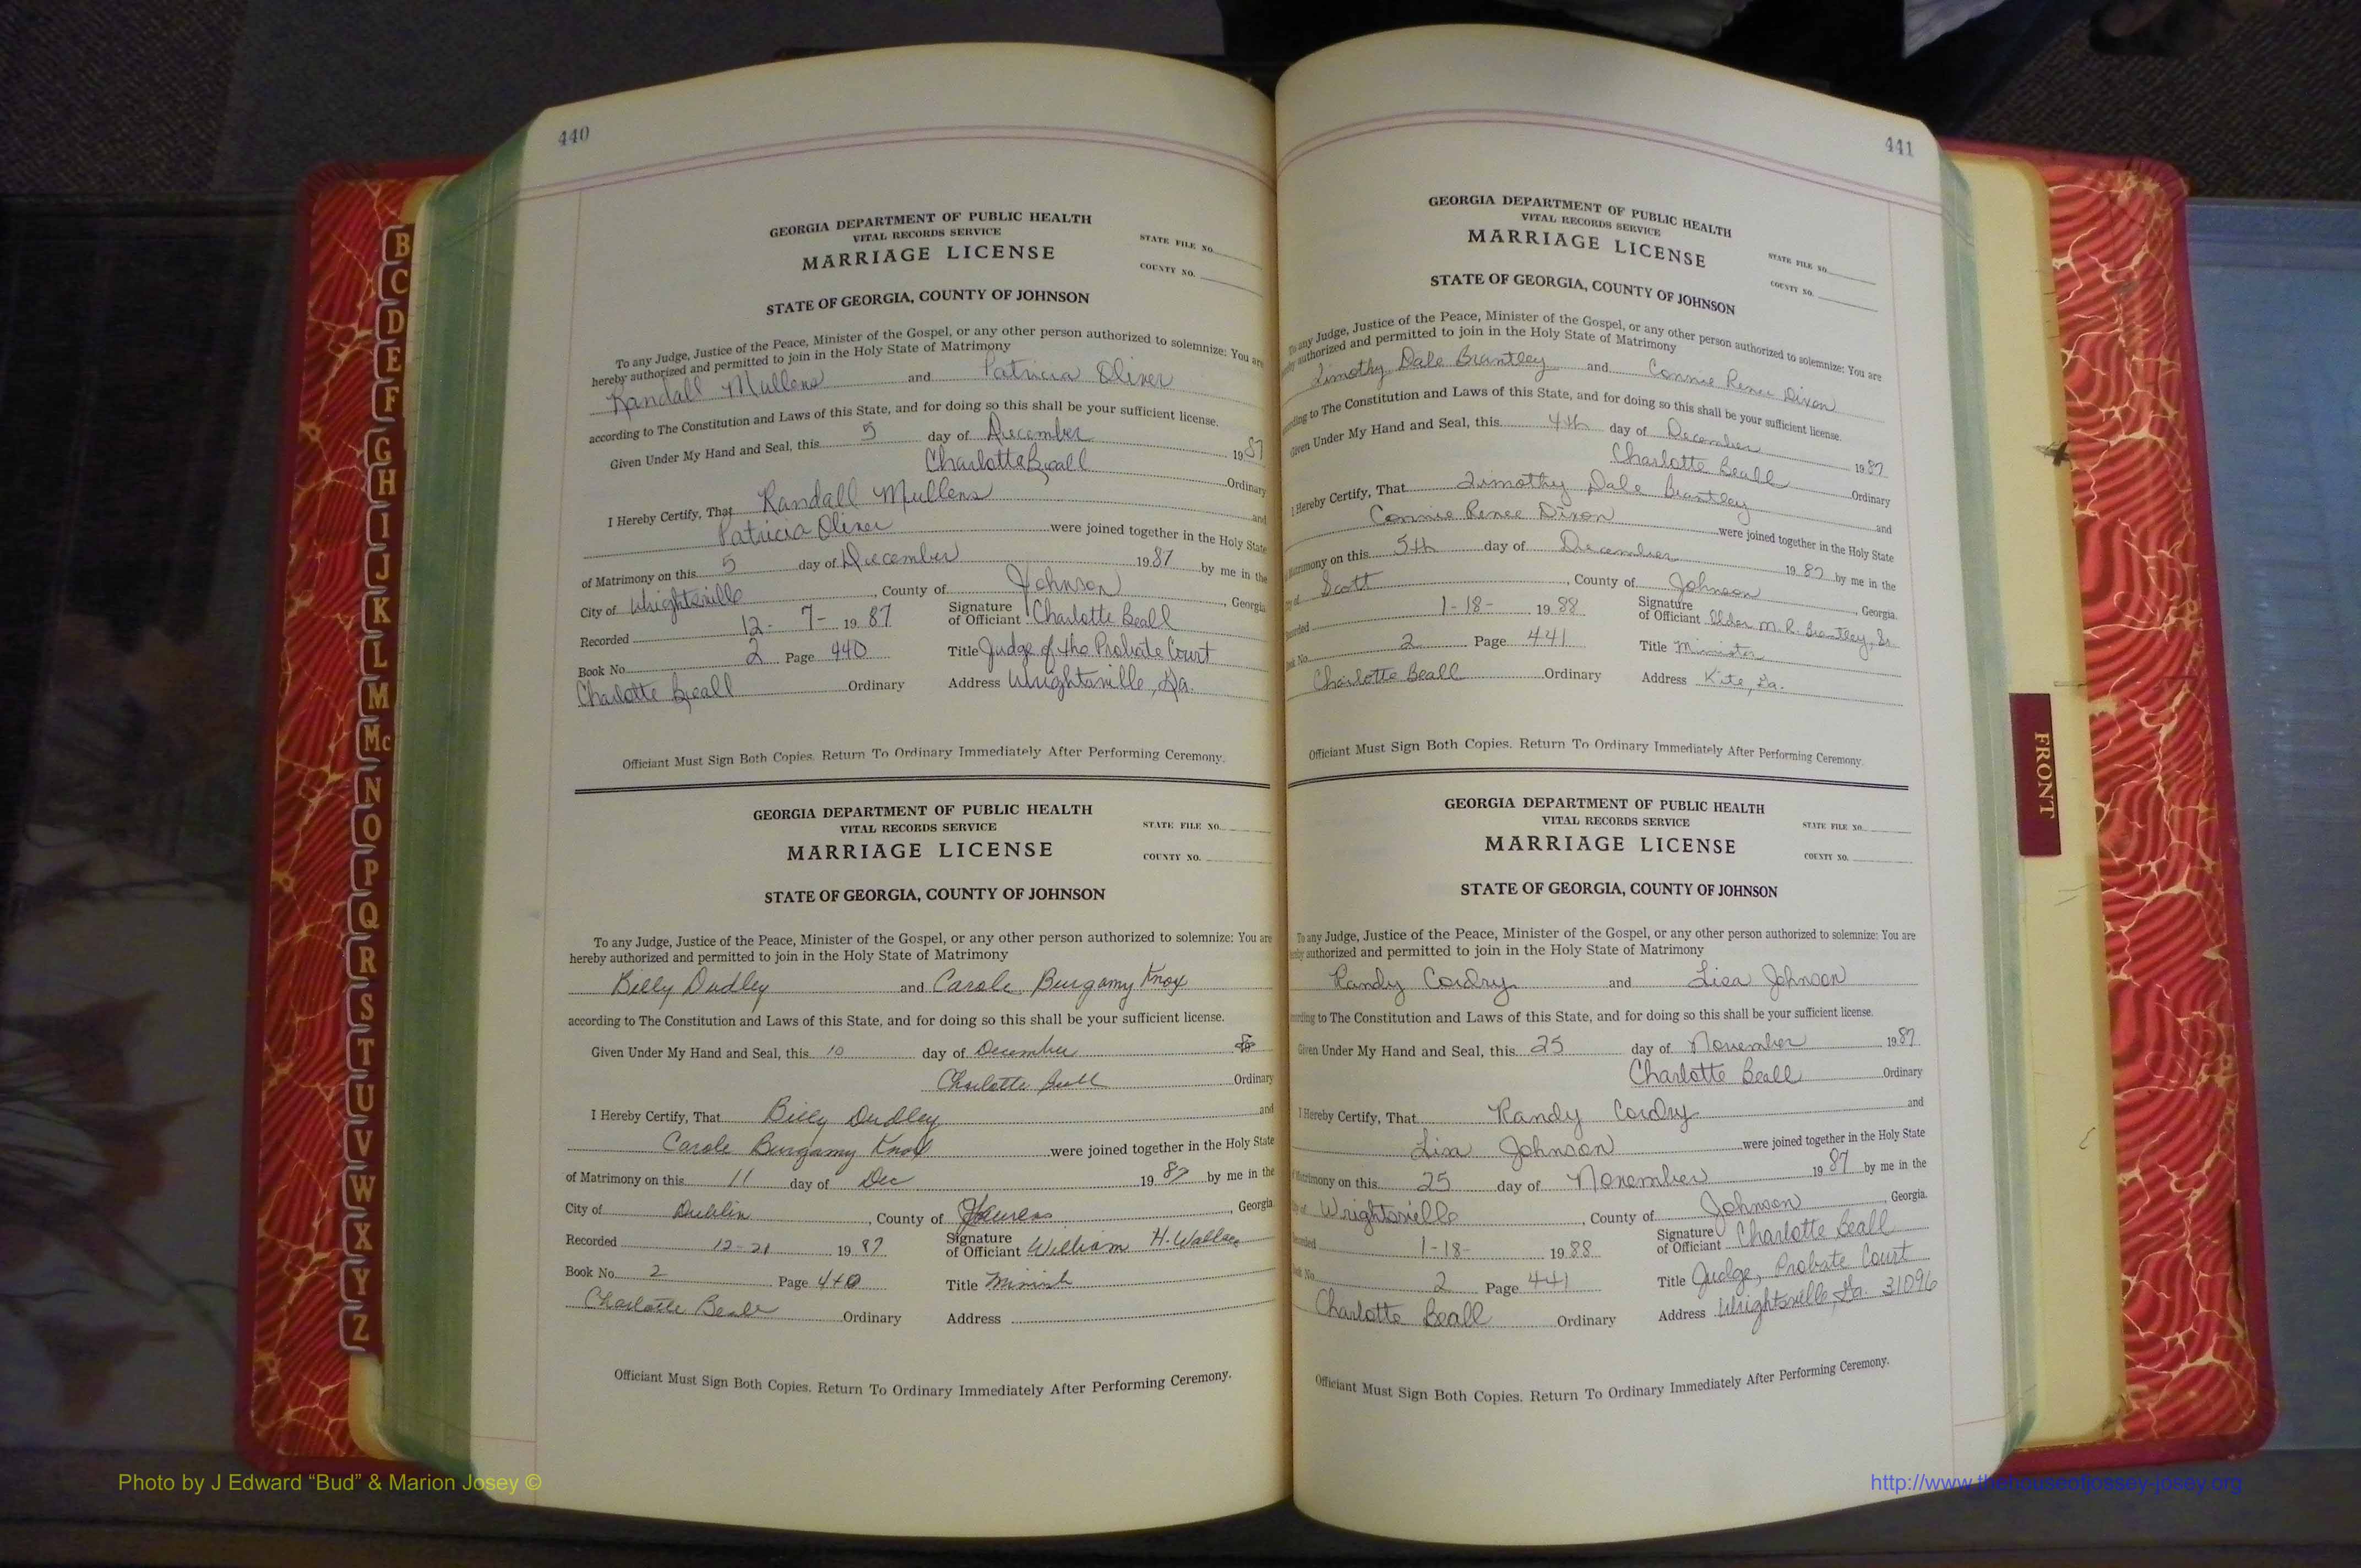 440
GEORGIA DEPARTMENT OF PUBLIC HEALTH
VITAL RECORDS SERVICE
MARRIAGE LICENSE
STATE FILE NO.
COUNTY NO.
STATE OF GEORGIA, COUNTY OF JOHNSON
To any Judge, Justice of the Peace, Minister of the Gospel, or any other person authorized to solemnize: You are
hereby authorized and permitted to join in the Holy State of Matrimony
Randall Mullens and Patricia Oliver
according to The Constitution and Laws of this State, and for doing so this shall be your sufficient license.
Given Under My Hand and Seal, this 5 day of December 1987
Charlotte Beall Ordinary
I Hereby Certify, That Randall Mullens and
Patricia Oliver were joined together in the Holy State
of Matrimony on this 5 day of December 1987 by me in the
City of Wrightsville, County of Johnson, Georgia
Recorded 12-7- 1987 Signature of Officiant Charlotte Beall
Book No. 2 Page 440 Title Judge of the Probate Court
Charlotte Beall Ordinary Address Wrightsville, Ga.
Officiant Must Sign Both Copies. Return To Ordinary Immediately After Performing Ceremony.
GEORGIA DEPARTMENT OF PUBLIC HEALTH
VITAL RECORDS SERVICE
MARRIAGE LICENSE
STATE FILE NO.
COUNTY NO.
STATE OF GEORGIA, COUNTY OF JOHNSON
To any Judge, Justice of the Peace, Minister of the Gospel, or any other person authorized to solemnize: You are
hereby authorized and permitted to join in the Holy State of Matrimony
Billy Dudley and Carole Burgamy Knox
according to The Constitution and Laws of this State, and for doing so this shall be your sufficient license.
Given Under My Hand and Seal, this 10 day of December
Charlotte Beall Ordinary
I Hereby Certify, That Billy Dudley and
Carole Burgamy Knox were joined together in the Holy State
of Matrimony on this 11 day of Dec 1987 by me in the
City of Dublin, County of Laurens, Georgia
Recorded 12-21 1987 Signature of Officiant William H. Wallace
Book No. 2 Page 440 Title
Charlotte Beall Ordinary Address
Officiant Must Sign Both Copies. Return To Ordinary Immediately After Performing Ceremony.
441
GEORGIA DEPARTMENT OF PUBLIC HEALTH
VITAL RECORDS SERVICE
MARRIAGE LICENSE
STATE FILE NO.
COUNTY NO.
STATE OF GEORGIA, COUNTY OF JOHNSON
To any Judge, Justice of the Peace, Minister of the Gospel, or any other person authorized to solemnize: You are
authorized and permitted to join in the Holy State of Matrimony
Timothy Dale Brantley and Connie Renee Dixon
to The Constitution and Laws of this State, and for doing so this shall be your sufficient license.
Given Under My Hand and Seal, this 4th day of December 1987
Charlotte Beall Ordinary
I Hereby Certify, That Timothy Dale Brantley and
Connie Renee Dixon were joined together in the Holy State
Matrimony on this 5th day of December 1987 by me in the
of Scott, County of Johnson, Georgia.
1-18- 1988 Signature of Officiant Elder M. R. Brantley, Sr.
No. 2 Page 441 Title Minister
Charlotte Beall Ordinary Address Kite, Ga.
Officiant Must Sign Both Copies. Return To Ordinary Immediately After Performing Ceremony.
GEORGIA DEPARTMENT OF PUBLIC HEALTH
VITAL RECORDS SERVICE
MARRIAGE LICENSE
STATE FILE NO.
COUNTY NO.
STATE OF GEORGIA, COUNTY OF JOHNSON
To any Judge, Justice of the Peace, Minister of the Gospel, or any other person authorized to solemnize: You are
authorized and permitted to join in the Holy State of Matrimony
Randy Cordry and Lisa Johnson
to The Constitution and Laws of this State, and for doing so this shall be your sufficient license.
Given Under My Hand and Seal, this 25 day of November 1987
Charlotte Beall Ordinary
I Hereby Certify, That Randy Cordry and
Lisa Johnson were joined together in the Holy State
Matrimony on this 25 day of November 1987 by me in the
of Wrightsville, County of Johnson, Georgia.
1-18- 1988 Signature of Officiant Charlotte Beall
No. 2 Page 441 Title Judge, Probate Court
Charlotte Beall Ordinary Address Wrightsville, Ga. 31096
Officiant Must Sign Both Copies. Return To Ordinary Immediately After Performing Ceremony.
B
C
D
E
F
G
H
I
J
K
L
M
Mc
N
O
P
Q
R
S
T
U
V
W
X
Y
Z
FRONT
Photo by J Edward “Bud” & Marion Josey ©
http://www.thehouseofjossey-josey.org